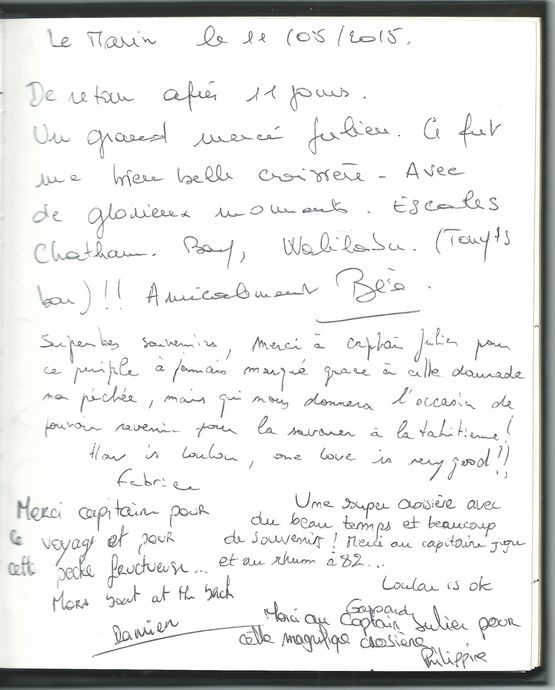 Le Marin le 11/05/2015.
De retour après 11 jours.
Un grand merci Julien. Ce fut
une bien belle croisière - Avec
de glorieux moments. Escales
Chatham. Bay, Walilabu. (Tony's
bar)!! Amicalement Béa.
Superbes souvenirs, merci à captain Julien pour
ce périple à jamais marqué grace à cette daurade
non péchée, mais qui nous donnera l'occasion de
pouvoir revenir pour la savourer à la tahitienne!
How is loulou, one love is very good!!
Fabrice
Merci capitaine pour
ce voyage et pour
cette peche fructueuse...
Mors boat at the back
Damien
Une super croisière avec
du beau temps et beaucoup
de souvenirs! Merci au capitaine
et au rhum à 82...
Loulou is ok
Gaspard
Merci au Captain Julien pour
cette magnifique croisière
Philippine